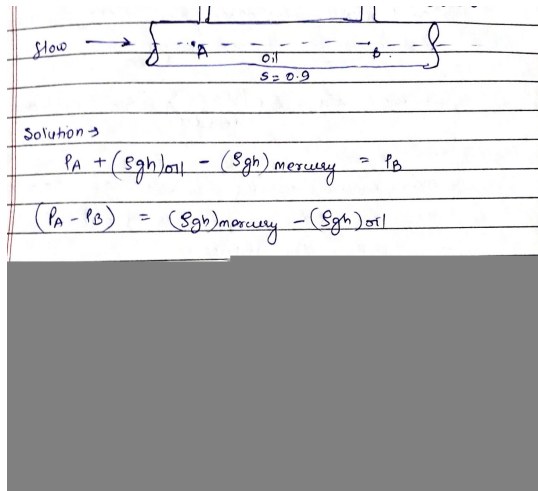 flow → A B
oil
S = 0.9
Solution →
PA + (ρgh)oil - (ρgh) mercury = PB
(PA - PB) = (ρgh)mercury - (ρgh)oil